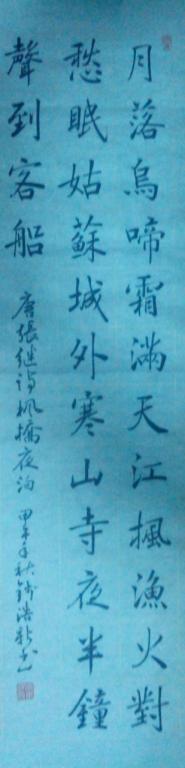 月落烏啼霜滿天江楓漁火對
愁眠姑蘇城外寒山寺夜半鐘
聲到客船
唐張继詩楓橋夜泊 甲午年秋